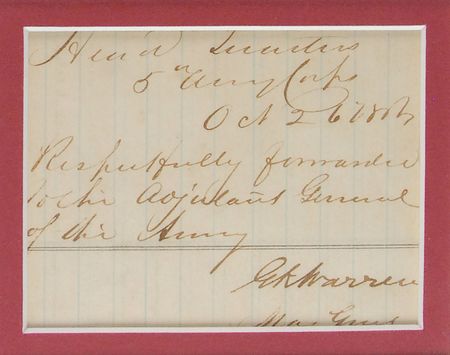 Head Quarters
5th Army Corps
Oct 26 1864
Respectfully forwarded
to the Adjutant General
of the Army
GKWarren
Maj Genl